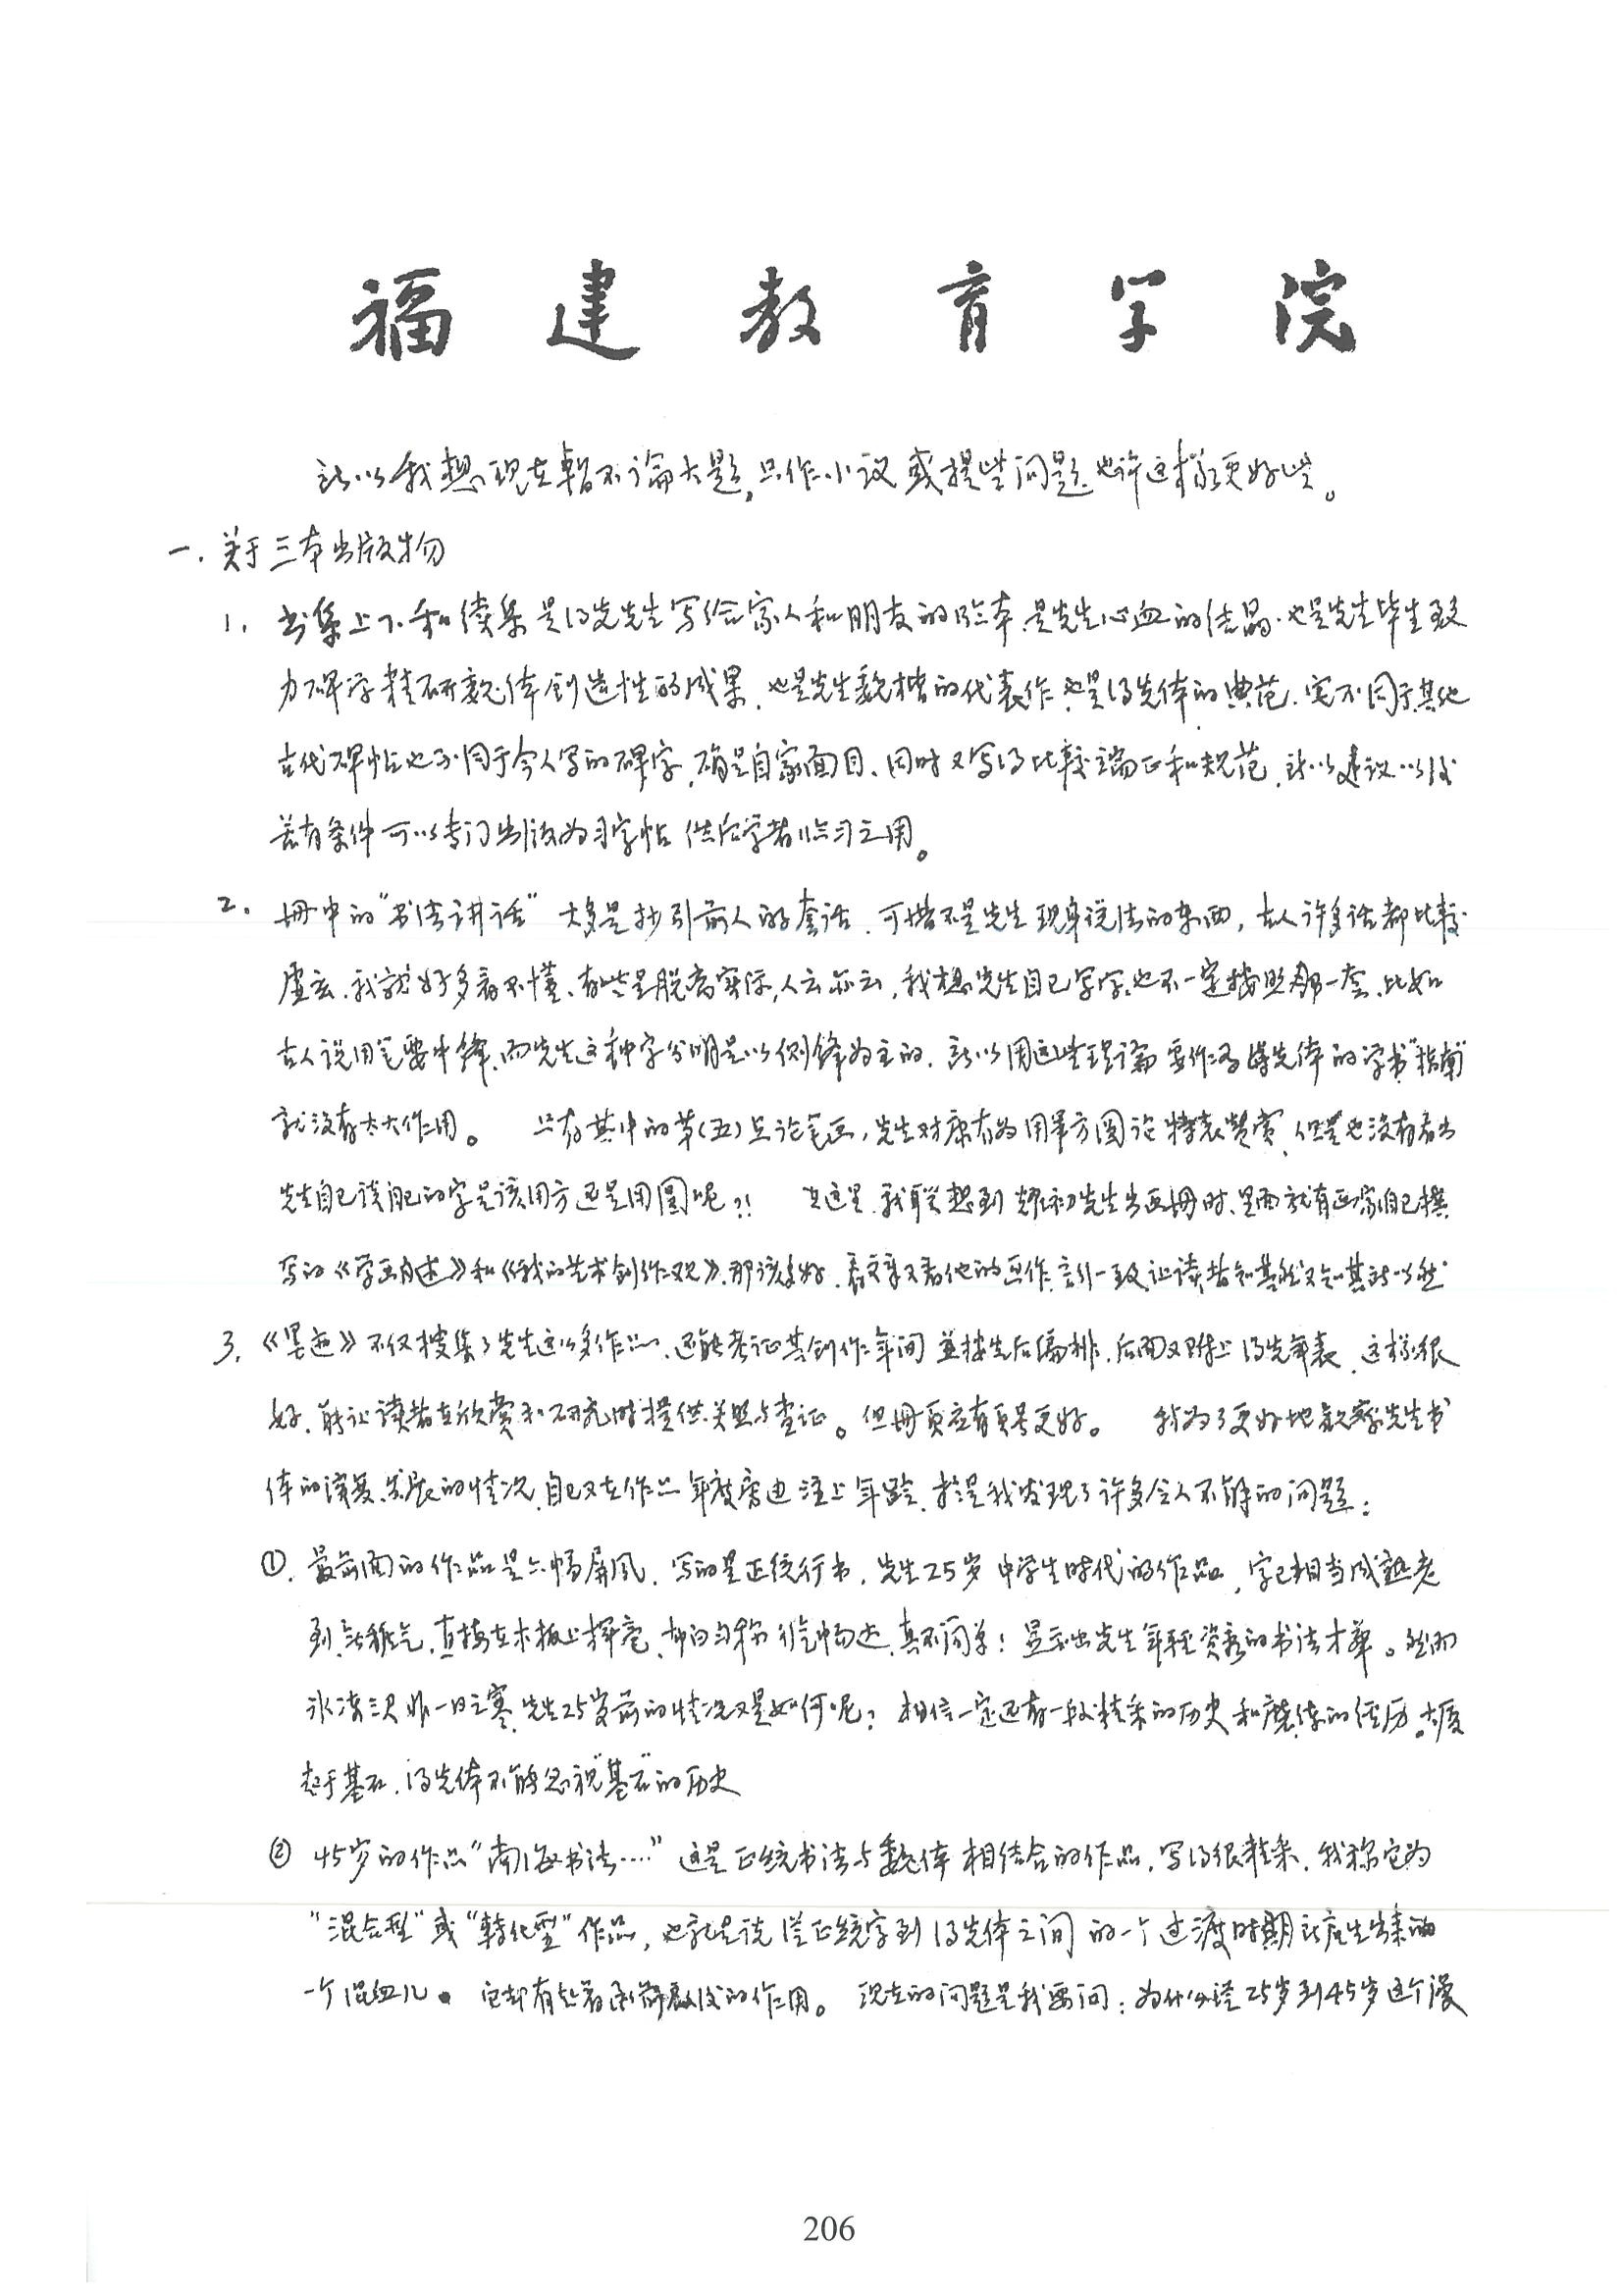 福建教育学院
所以我想现在暂不論大题，只作小议或提些问题，也许这样更好些。
一．关于三本出版物
1．书集上下和续集是得先先生写给家人和朋友的临本，是先生心血的结晶．也是先生毕生致
力碑学精研魏体创造性的成果，也是先生魏楷的代表作，也是得先体的典范．它不同于其他
古代碑帖也不同于今人写的碑字，确是自家面目、同时又写得比较端正和规范，所以建议以后
若有条件可以专门出版为习字帖供后学者临习之用。
2．册中的"书法讲话"大多是抄引前人的套话，可惜不是先生现身说法的东西，古人许多话都比较
虚玄，我就好多看不懂、有些是脱离实际，人云亦云，我想先生自己写字，也不一定按照那一套、比如
古人说用笔要中锋，而先生这种字分明是以侧锋为主的，所以用这些理論要作为得先体的学书"指南"
就没有太大作用。 只有其中的第(五)点论笔画，先生对康有为用笔方圆论特表赞赏，但是也没有看出
先生自己谈自己的字是该用方还是用圆呢？！ 由这里，我联想到耀初先生出画册时、里面就有画家自己撰
写的《学画自述》和《我的艺术创作观》，那该多好，看文章又看他的画作，言行一致让读者知其然又知其所以然
3．《墨迹》不仅搜集了先生这么多作品，还能考证其创作年间並按先后编排．后面又附上得先年表，这样很
好，能让读者在欣赏和研究时提供关照与查证。但册页应有页号更好。 我为了更好地观察先生书
体的演变、发展的情况，自己又在作品年度旁边注上年龄，于是我发现了许多令人不解的问题：
①．最前面的作品是六幅屏风，写的是正统行书，先生25岁中学生时代的作品，字已相当成熟老
到，无稚气，直接在木板上挥毫，布白匀称行气畅达，真不简单！显示出先生年轻资秀的书法才华。然而
冰冻三尺非一日之寒，先生25岁前的情况又是如何呢？相信一定还有一段精采的历史和磨练的经历。大厦
起于基石，得先体不能忽视"基石"的历史
② 45岁的作品"南海书法……"这是正统书法与魏体相结合的作品，写得很精采，我称它为
"混合型"或"转化型"作品，也就是说从正统字到得先体之间的一个过渡时期所产生出来的
一个混血儿。它却有起着承前启后的作用。 现在的问题是我要问：为什么从25岁到45岁这个漫
206